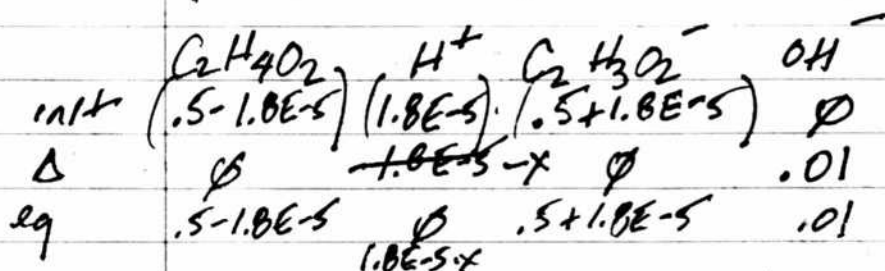 C2H4O2 H+ C2H3O2- OH-
init (.5-1.8E-5) (1.8E-5) · (.5+1.8E-5) ∅
Δ ∅ -1.8E-5 -x ∅ .01
eq .5-1.8E-5 ∅ .5+1.8E-5 .01
1.8E-5-x